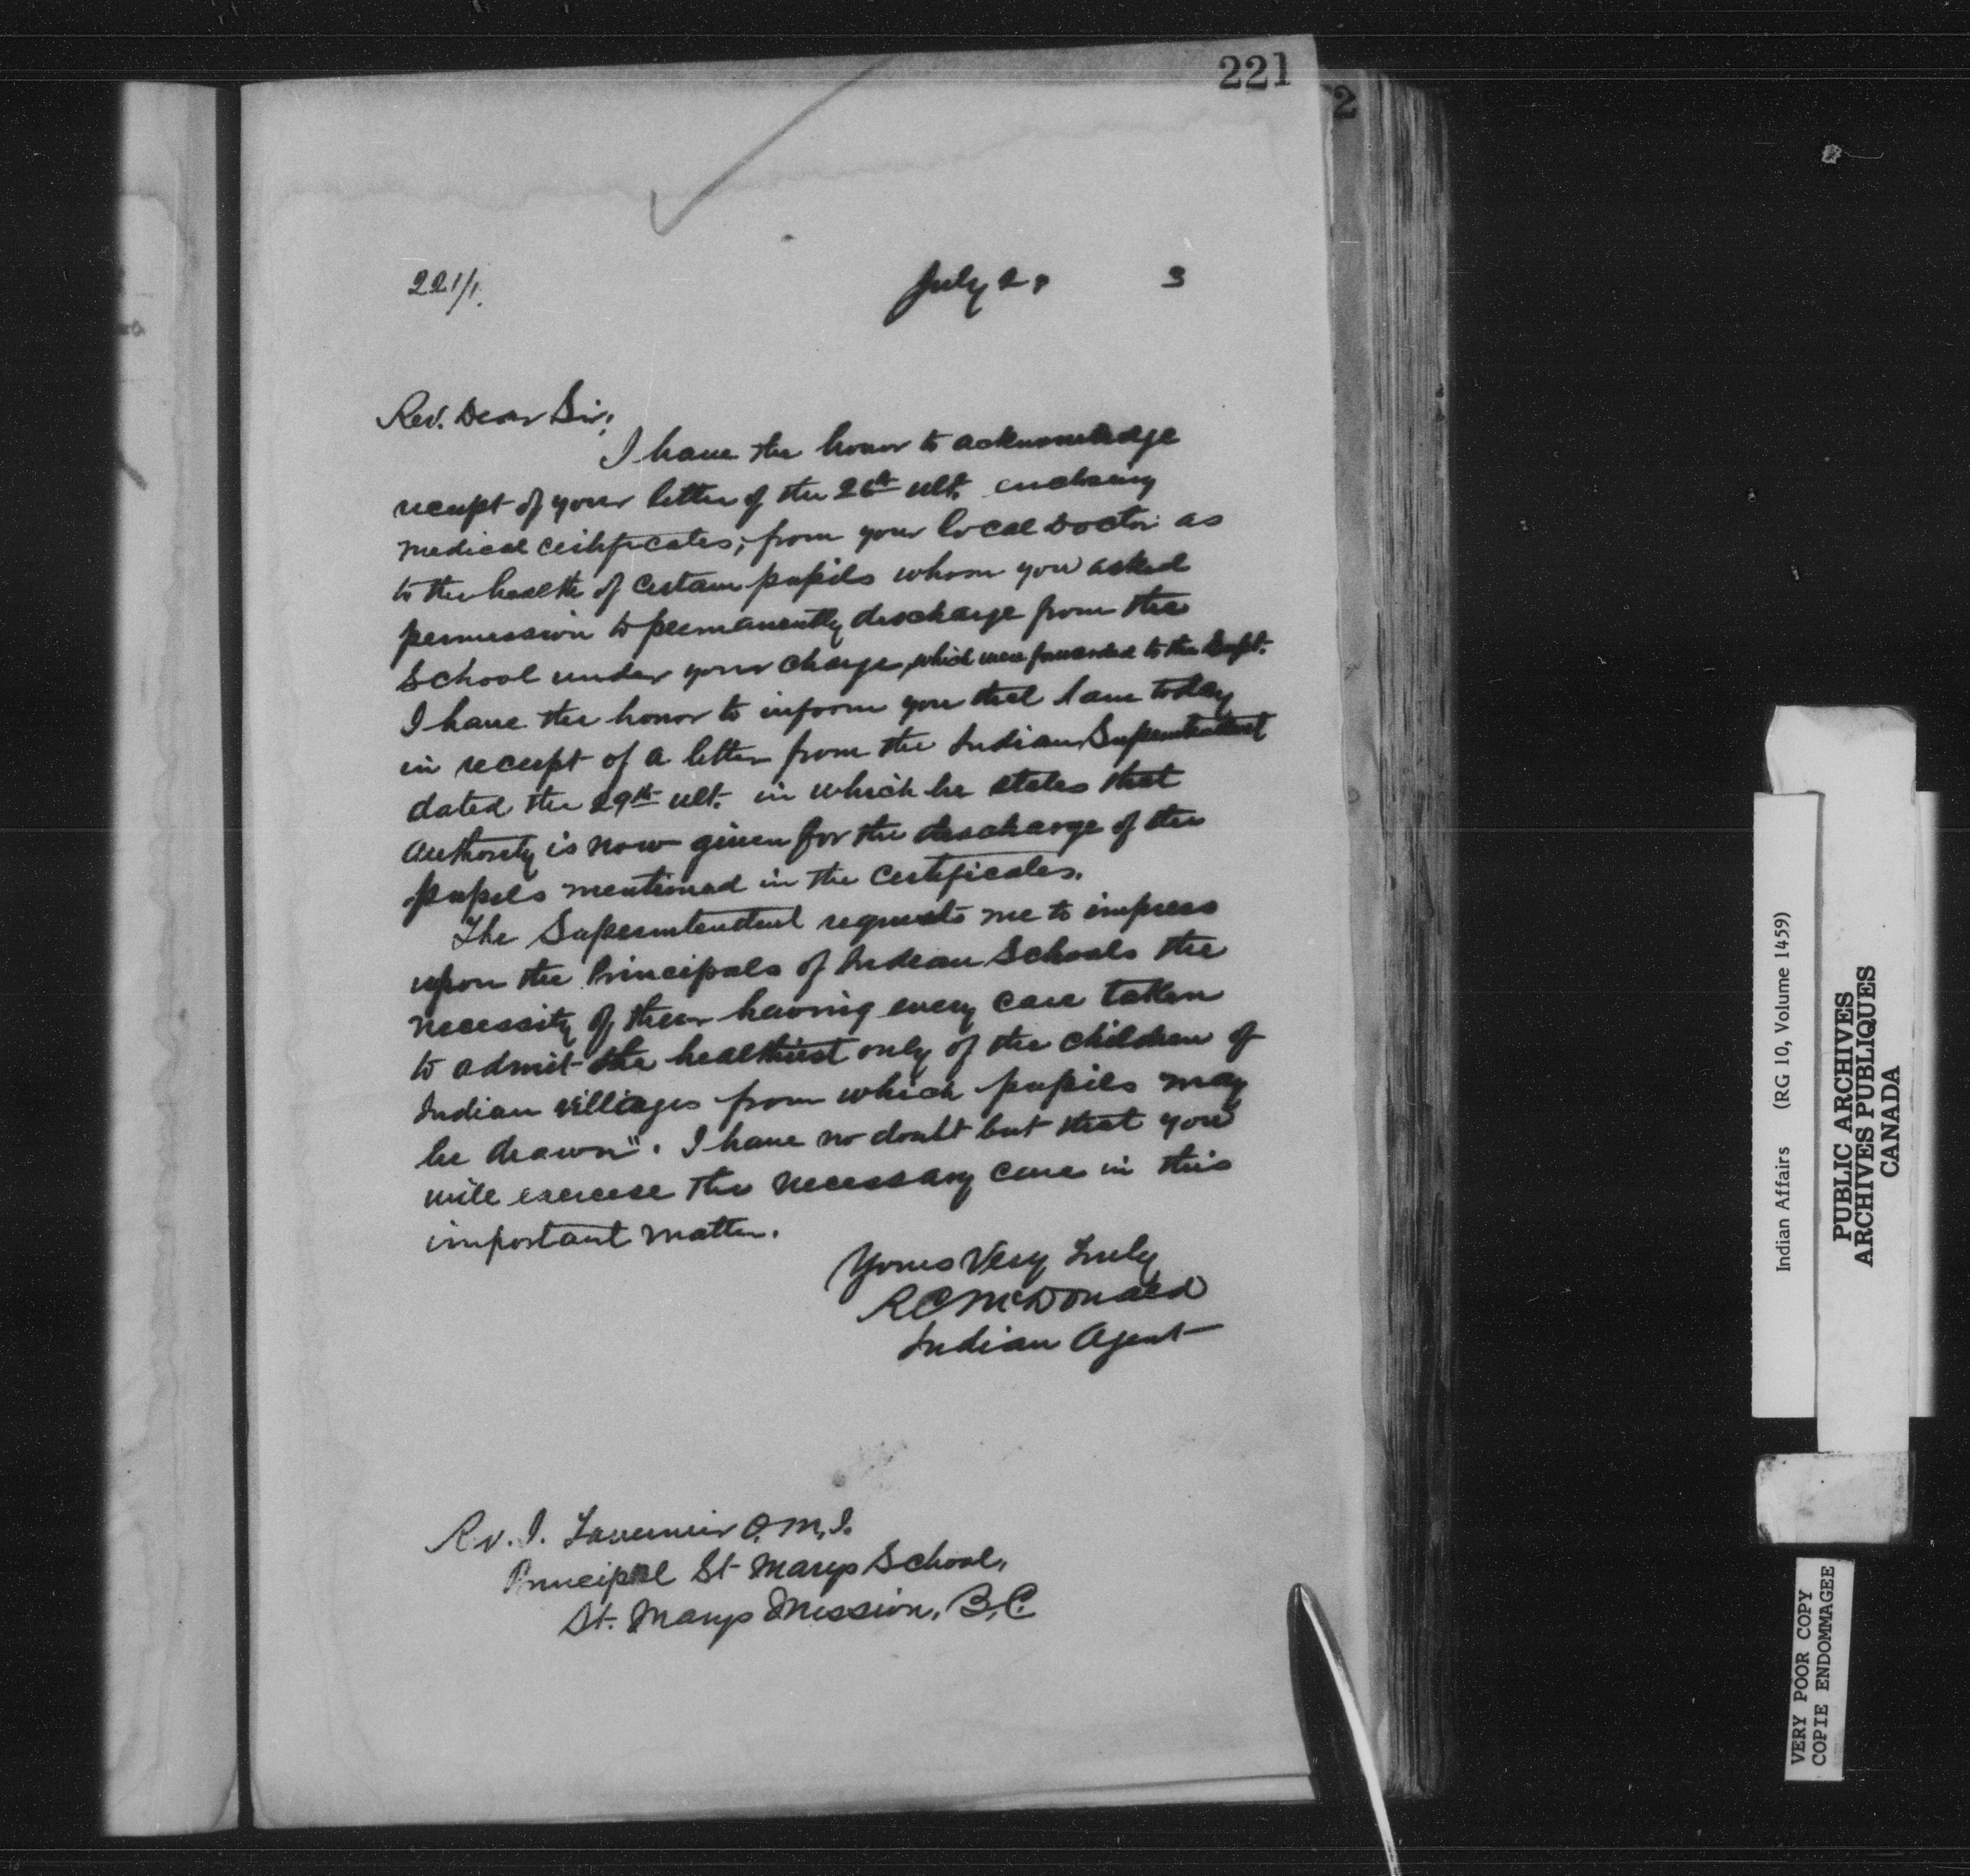 221
2
221/1.
July 2, 3
Rev. Dear Sir;
I have the honor to acknowledge
receipt of your letter of the 26th ult. enclosing
medical certificates, from your local Doctor as
to the health of certain pupils whom you asked
permission to permanently discharge from the
School under your charge, which were forwarded to the Supt.
I have the honor to inform you that I am today
in receipt of a letter from the Indian Superintendent
dated the 29th ult. in which he states that
authority is now given for the discharge of the
pupils mentioned in the certificates.
The Superintendent requests me to impress
upon the Principals of Indian Schools the
necessity of their having every care taken
to admit the healthiest only of the children of
Indian villages from which pupils may
be drawn". I have no doubt but that you
will exercise the necessary care in this
important matter.
Yours Very Truly
R C McDonald
Indian Agent
Rv. I. Tavernier O.M.I.
Principal St Marys School,
St. Marys Mission, B.C.
Indian Affairs (RG 10, Volume 1459)
PUBLIC ARCHIVES
ARCHIVES PUBLIQUES
CANADA
VERY POOR COPY
COPIE ENDOMMAGEE